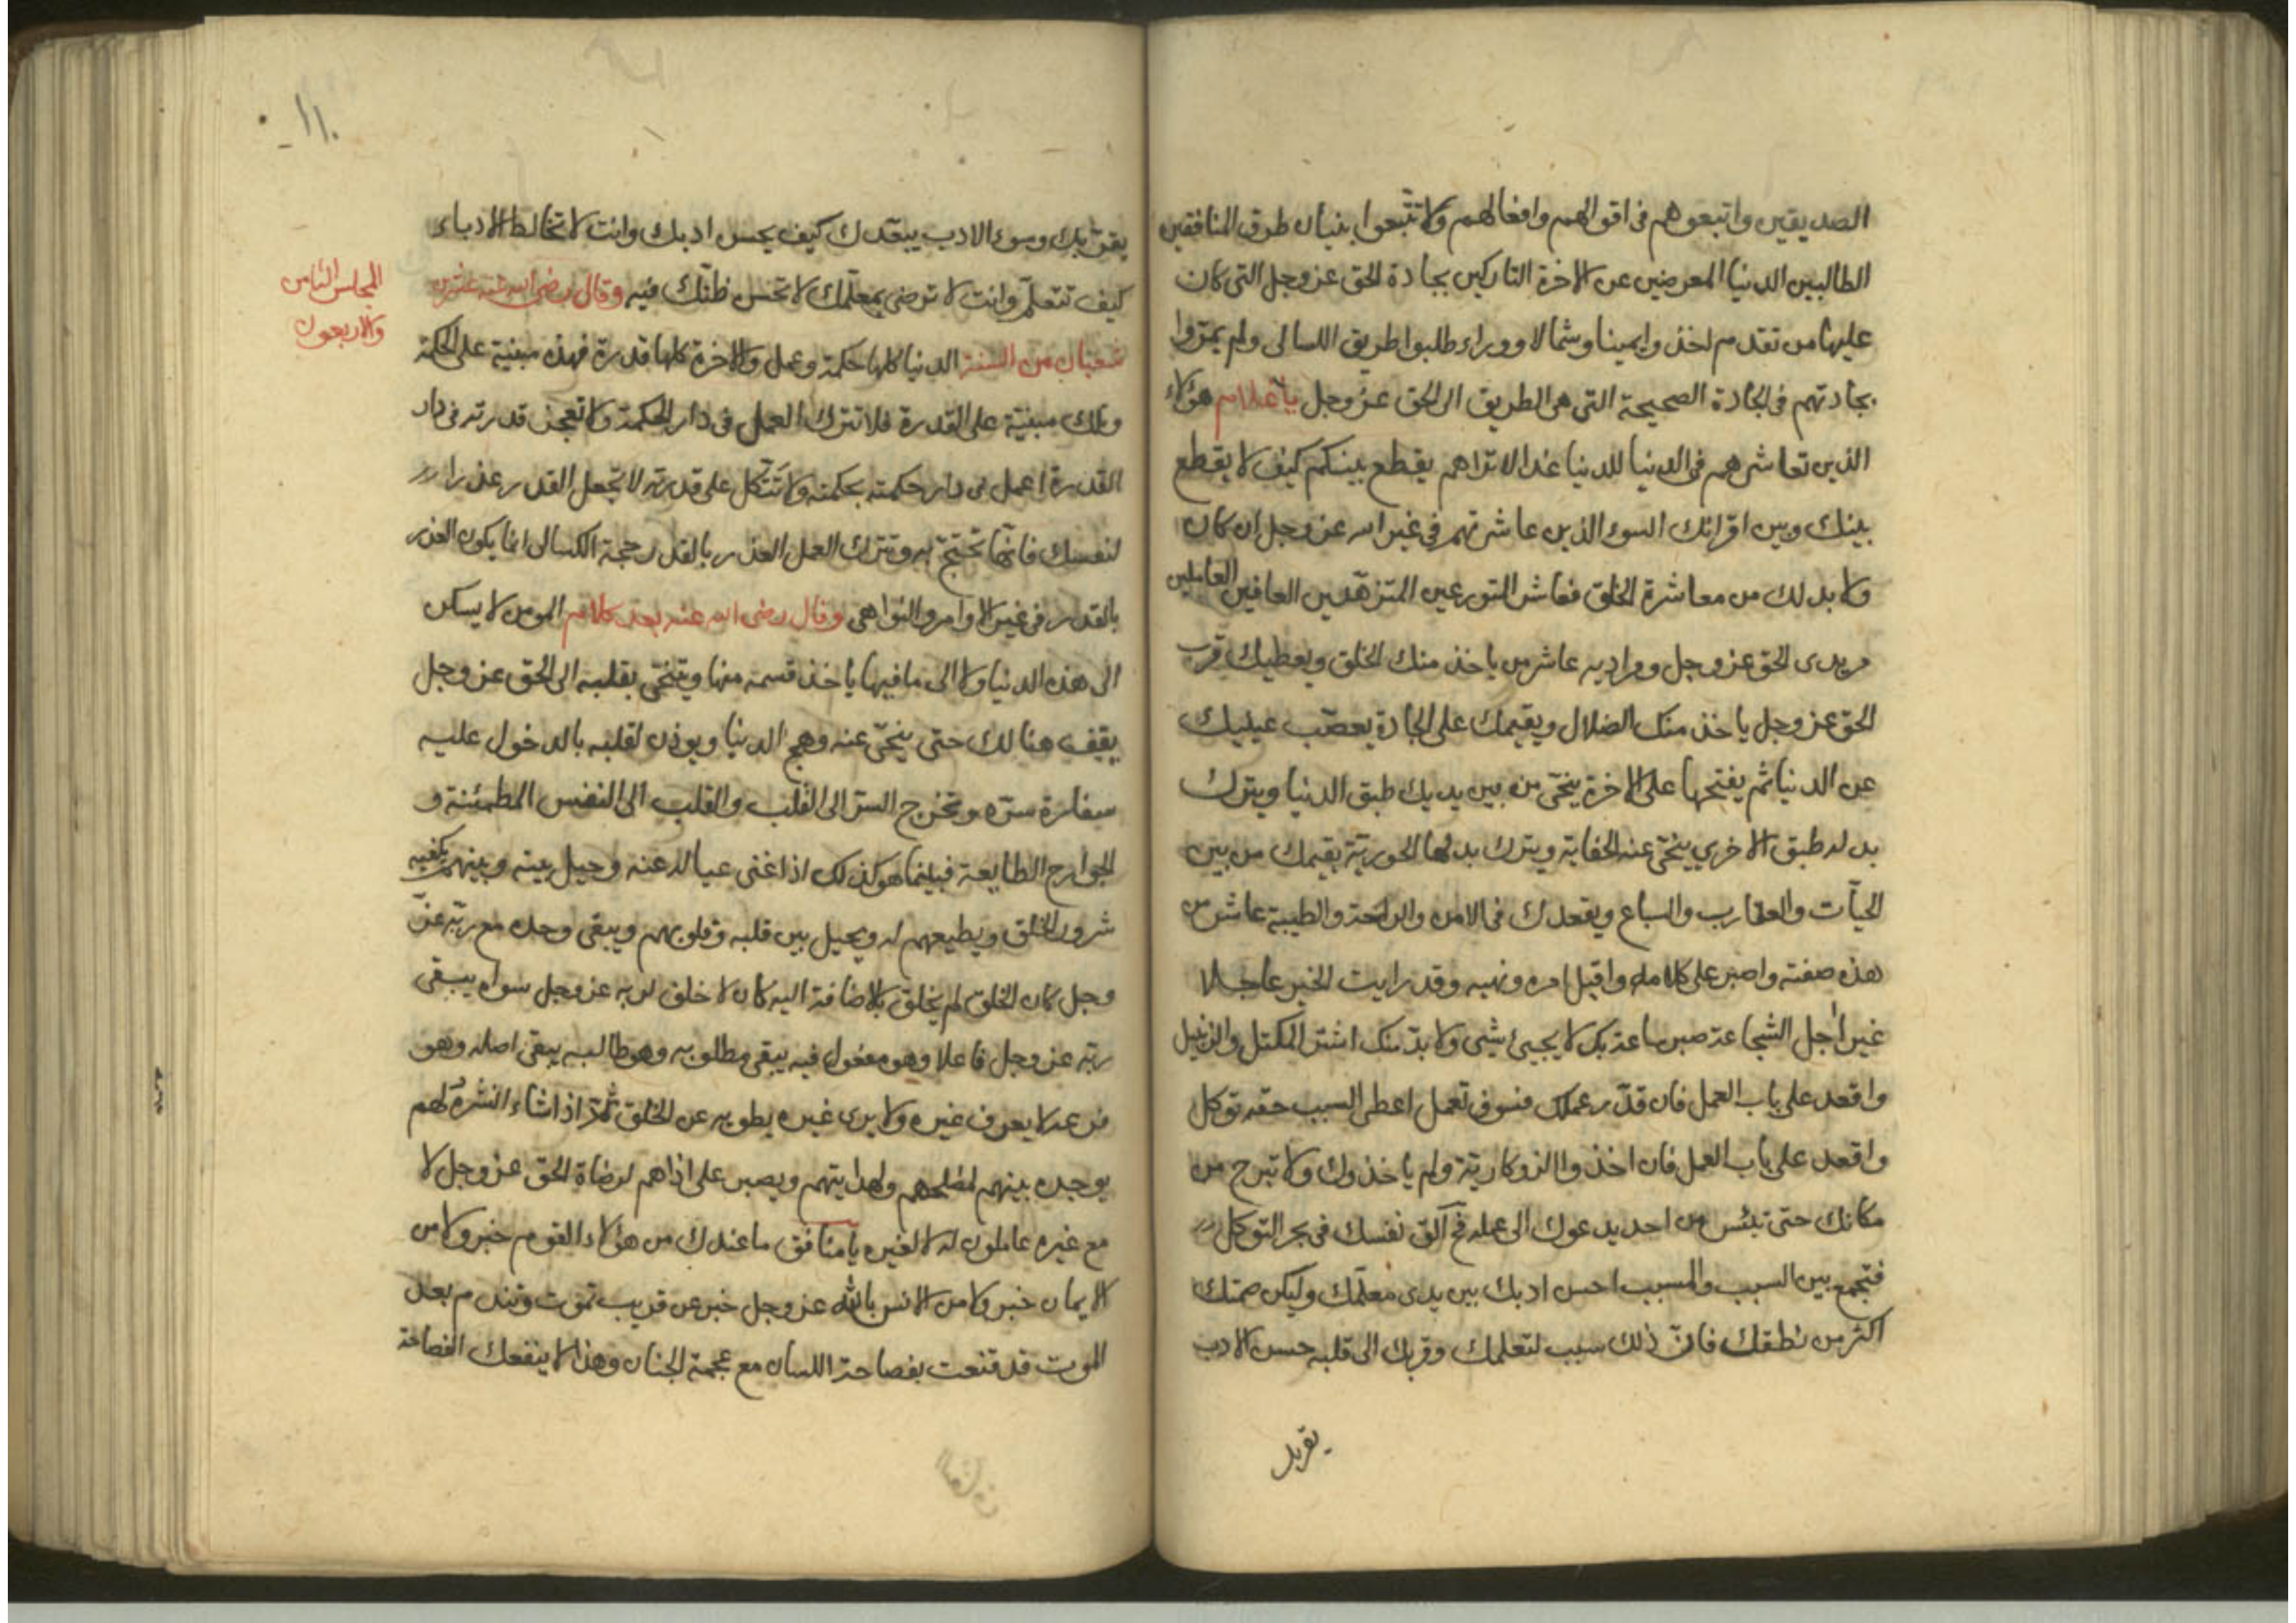 الصديقين واتبعوهم فى اقوالهم وافعالهم ولا تتبعوا بنيان طرق المنافقين
الطالبين الدنيا المعرضين عن الاخرة التاركين بجادة الحق عز وجل التى كان
عليها من تقدم اخذوا يمينا وشمالا ووراء طلبوا طريق اللسالى ولم يمروا
بجادتهم فى الجادة الصحيحة التى هى الطريق الى الحق عز وجل يا غلام هؤلاء
الذين تعاشرهم فى الدنيا للدنيا غدا لا تراهم يقطع بينكم كيف لا يقطع
بينك وبين اقرانك السوء الذين عاشرتهم فى غير الله عز وجل ان كان
ولا بد لك من معاشرة الخلق فعاشر المتورعين المتزهدين العافين العاملين
مريدى الحق عز وجل ومراديه عاشر من ياخذ منك الخلق ويعطيك قرب
الحق عز وجل ياخذ منك الضلال ويقيمك على الجادة يعصب عينيك
عن الدنيا ثم يفتحها على الاخرة ينحى من بين يديك طبق الدنيا ويترك
بدله طبق الاخرى ينحى عنه الحفاية ويترك بدلها الحورية يقيمك من بين
الحيات والعقارب والسباع ويقعدك فى الامن والراحة والطيبة عاشر من
هذه صفته واصبر على كلامه واقبل امره ونهيه وقد رايت الخير عاجلا
غير اجل الشجاعة صبر ساعة بك لا يجىء شيى ولا بد منك اشتر المكتل والزنبيل
واقعد على باب العمل فان قدر عملك فسوف تعمل اعطى السبب حقه توكل
واقعد على باب العمل فان اخذوا الزوكارية ولم ياخذوك ولا تبرح من
مكانك حتى تيئس من احد يدعوك الى عمله فح ألق نفسك فى بحر التوكل
فتجمع بين السبب والمسبب احسن ادبك بين يدى معلمك وليكن صمتك
اكثر من نطقك فان ذلك سبب لتعلمك وقربك الى قلبه حسن الادب
يقربك
١١٠
يقربك وسوء الادب يبعدك كيف يحسن ادبك وانت لا تخالط الادباء
كيف تتعلم وانت لا ترضى بمعلمك لا تحسن ظنك فيه وقال رضى الله عنه عشرين
المجلس الثامن
والاربعون
شعبان من السنة الدنيا كلها حكمة وعمل والاخرة كلها قدرة فهذه مبنية على الحكمة
وتلك مبنية على القدرة فلا تترك العمل فى دار الحكمة ولا تعجز قدرته فى دار
القدرة اعمل فى دار حكمته بحكمته ولا تتكل على قدرته لا تجعل القدر عذرا
لنفسك فانها تحتج به وتترك العمل العذر بالقدر حجة الكسال انما يكون العذر
بالقدر فى غير الاوامر والنواهى وقال رضى الله عنه بعد كلام المومن لا يسكن
الى هذه الدنيا ولا الى ما فيها ياخذ قسمه منها ويتنحى بقلبه الى الحق عز وجل
يقيف هنالك حتى ينحى عنه وهج الدنيا ويوذن لقلبه بالدخول عليه
سفارة ستره وتخرج الستر الى القلب والقلب الى النفس المطمئنة و
الجوارح الطايعة فبينما هو كذلك اذا غنى عياله عنه وحيل بينه وبينهم يكفيه
شرور الخلق ويطيعهم له ويحيل بين قلبه وقلوبهم ويبقى وحده مع ربه عز
وجل كان الخلق لم يخلق بالاضافة اليه كان لا خلق لربه عز وجل سواه يبقى
ربه عز وجل فاعلا وهو مفعول فيه يبقى مطلوبه وهو طالبه يبقى اصله وهو
فرعه لا يعرف غيره ولا يرى غيره يطويه عن الخلق ثم اذا شاء انشره لهم
يوجده بينهم لمصلحهم ولهدايتهم ويصبر على اذاهم لرضاة الحق عز وجل لا
مع غيره عاملون له لا لغيره يا منافق ما عندك من هؤلاء القوم خبر ولا من
الايمان خبر ولا من الانس بالله عز وجل خبر عن قريب تموت وتندم بعد
الموت قد قنعت بفصاحة اللسان مع عجمة الجنان وهذا لا ينفعك الفصاحة